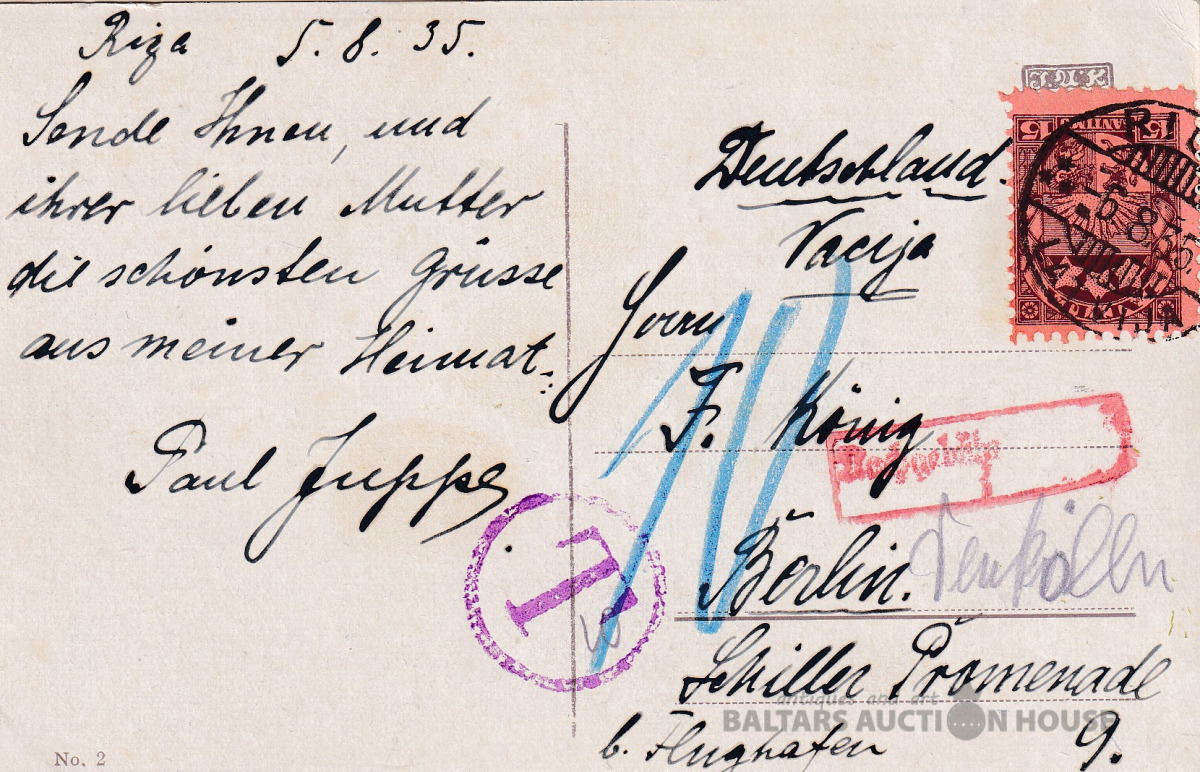 Riga 5. 8. 35.
Sende Ihnen, und
ihrer lieben Mutter
die schönsten Grüsse
aus meiner Heimat.
Paul Juppe
No. 2
Deutschland.
Vacija
Herrn
F. König
Berlin. Neukölln
Schiller Promenade
b. Flughafen 9.
10
T
15 15
-6. 8. 35
LATVIJA
Nachgebühr
antiques and art
BALTARS AUCTION HOUSE